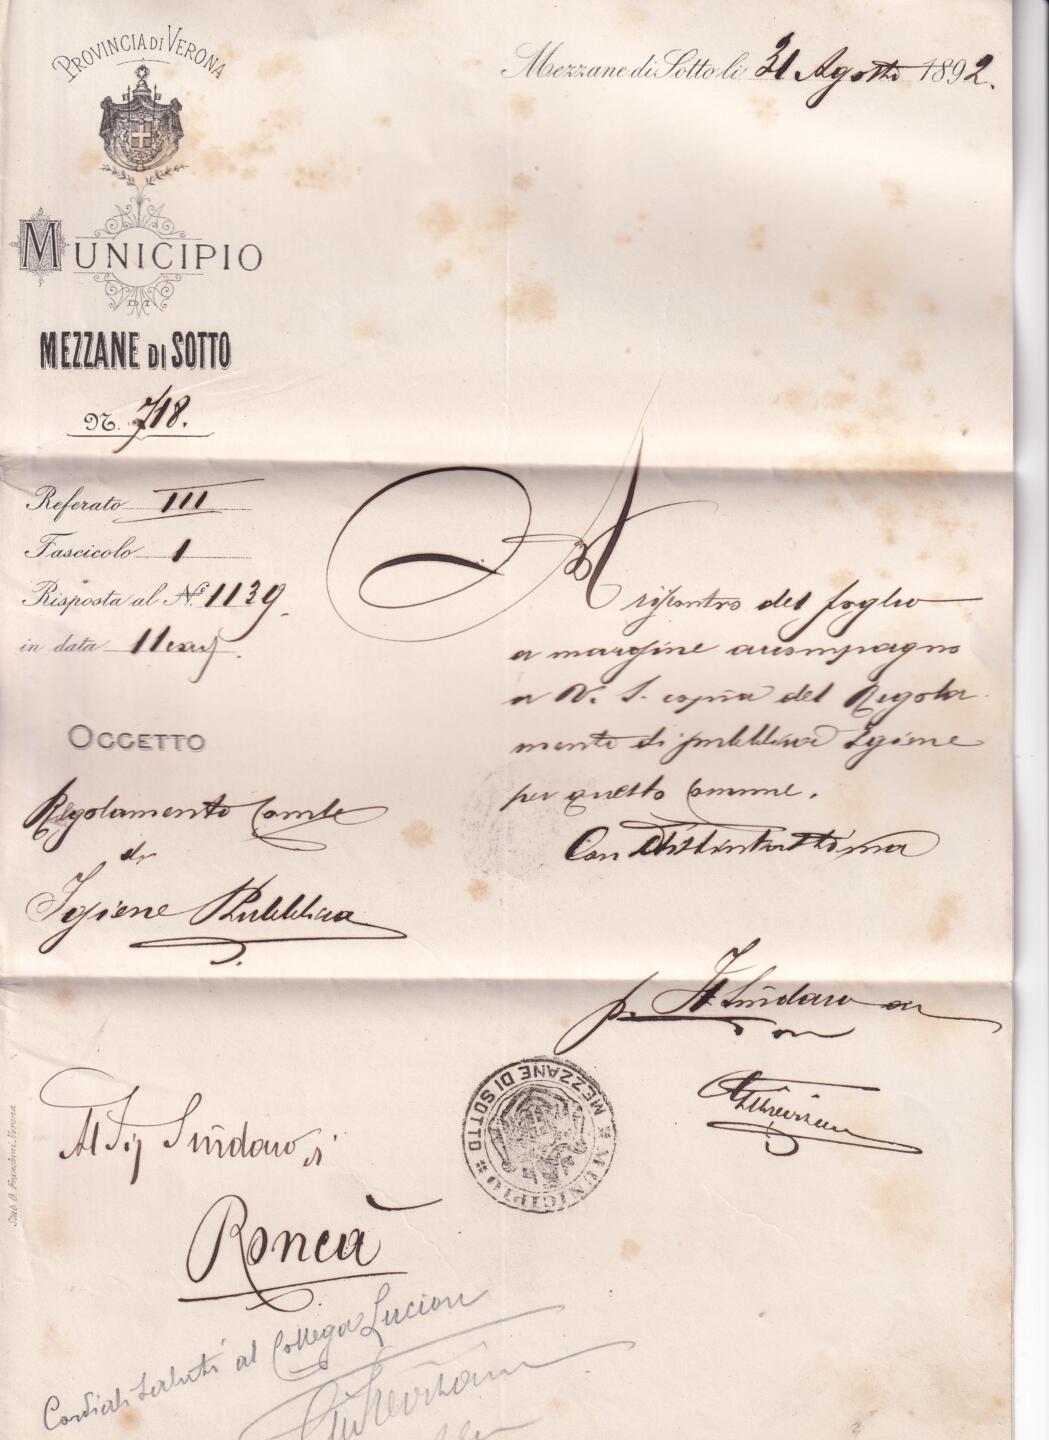 Provincia di Verona
Municipio
di
Mezzane di Sotto
N. 718.
Mezzane di Sotto li 31 Agosto 1892.
Referato III
Fascicolo 1
Risposta al N.º 1139
in data 11 corr.
Occetto
Regolamento Comle
di
Igiene Pubblica
A riscontro del foglio
a margine accompagno
a V. S. copia del Regola-
mento di pubblica Igiene
per questo Comune.
Con distintissima
p. Il Sindaco
Al Sig Sindaco di
Roncà
MUNICIPIO * MEZZANE DI SOTTO *
Trevisani
Cordiali saluti al Collega
Trevisani
Stab. G. Franchini. Verona